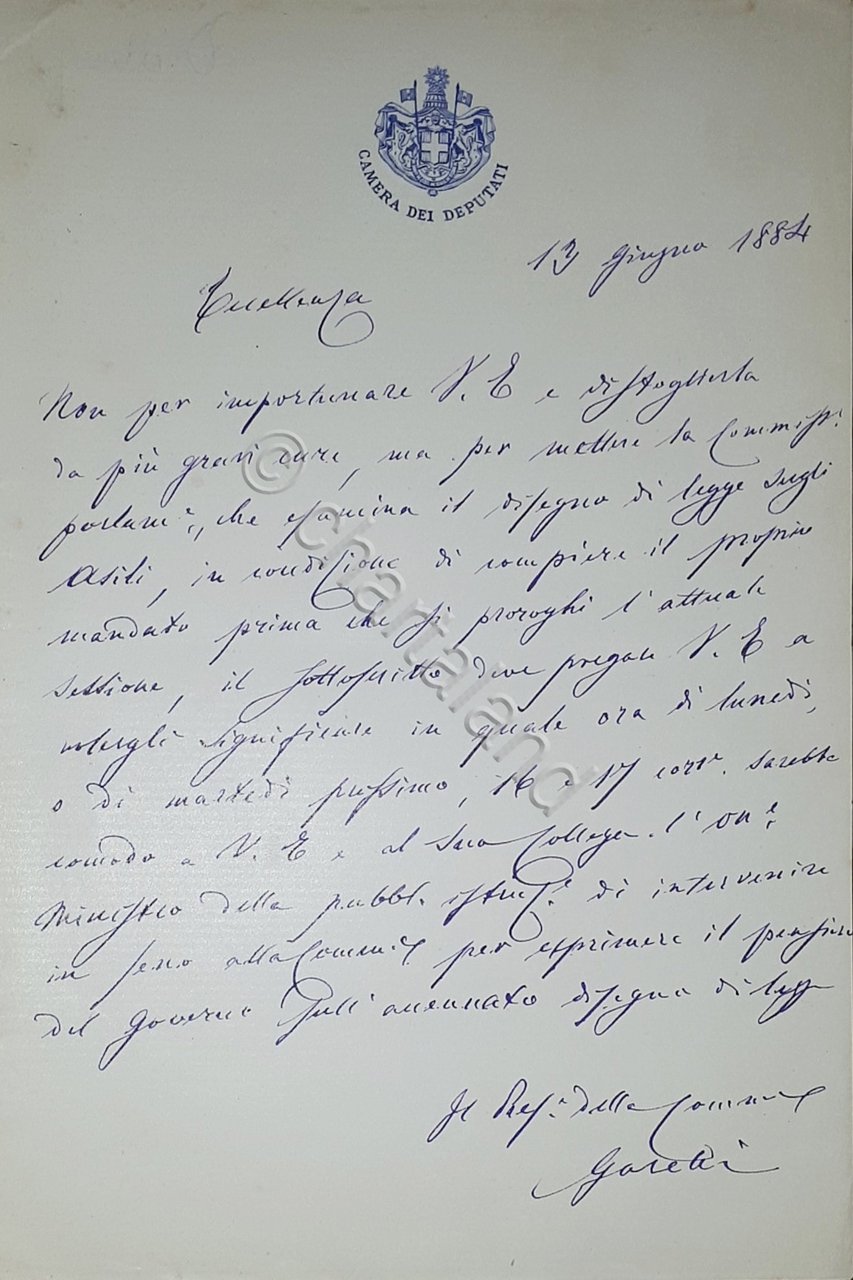 CAMERA DEI DEPUTATI
13 Giugno 1884
Eccellenza
Non per importunare V. E e distoglierla
da più gravi cure, ma per mettere la Commiss.
parlam.e, che esamina il disegno di legge sugli
Asili, in condizione di compiere il proprio
mandato prima che si proroghi l'attuale
sessione, il sottoscritto deve pregare V. E a
volergli significare in quale ora di lunedì,
o di martedì prossimo, 16 e 17 corr. sarebbe
comodo a V. E e al suo Collega l'on.e
Ministro della pubbl. istruz.e di intervenire
in seno alla Commis. per esprimere il pensiero
del Governo sull'accennato disegno di legge
Il Pres.e della Commis.
© chartaland